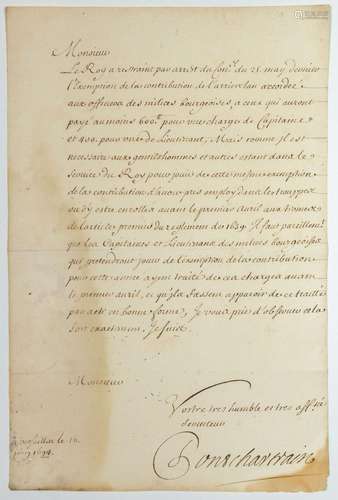 Monsieur
Le Roy a restraint par arrest du Con.el du 25. may dernier
l'Exemption de la contribution de l'arriereban accordée
aux officiers des milices bourgeoises, a ceux qui auront
payé au moins 600lt. pour une charge de Capitaine
et 400. pour une de Lieutenant, Mais comme Il est
necessaire aux gentilshommes et autres estant dans le
service du Roy pour jouir de cette mesme exemption
de la contribution d'avoir pris employ dans les trouppes
ou d'y estre enrollez avant le premier Avril aux termes
de l'article premier du reglement de 1689. Il faut pareillem.t
que les Capitaines et Lieutenans des milices bourgeoises
qui pretendront jouir de l'exemption de la contribution
pour cette année ayent traité de ces charges avant
le premier avril, et qu'ils fassent apparoir de ce traité
par acte en bonne forme, Je vous prie d'observer cela
fort exactement. Je suis.
Monsieur
Vostre tres humble et tres aff.né
serviteur
Pontchartrain
a versailles le
1694.